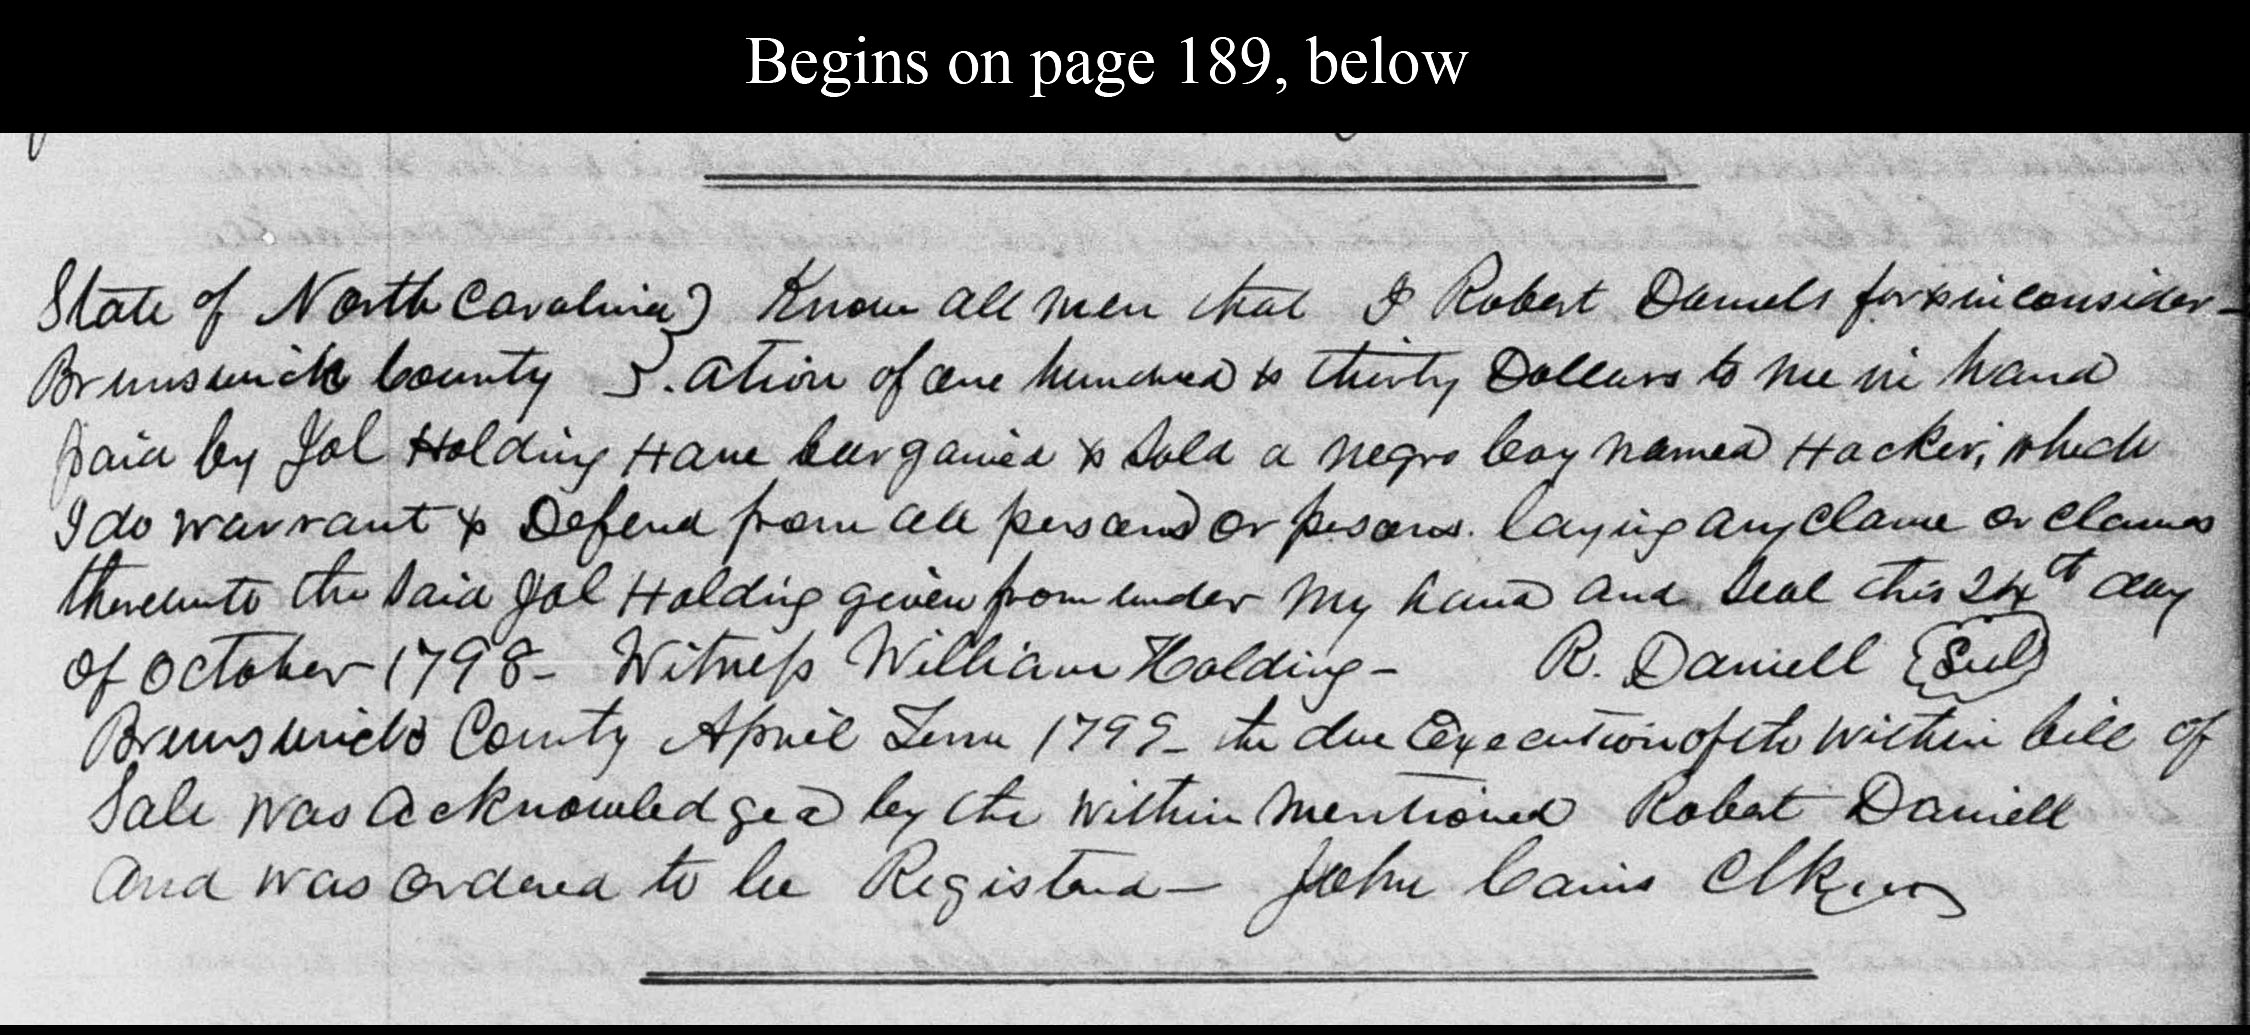 Begins on page 189, below
State of North Carolina } Know all men that I Robert Daniels for & in consider-
Brunswick County } . ation of one hundred & thirty Dollars to me in hand
paid by Jol Holding Have bargained & Sold a negro boy named Hacker, which
I do warrant & Defend from all persons or persons. laying any Clame or Clames
thereunto the Said Jol Holding given from under my hand and Seal this 24th day
of October 1798 - Witness William Holding - R. Daniell (Seal)
Brunswick County April Term 1799 - the due Execution of the Within bill of
Sale was acknowledged by the Within Mentioned Robert Daniell
And was ordered to be Registerd - John Cains Clk